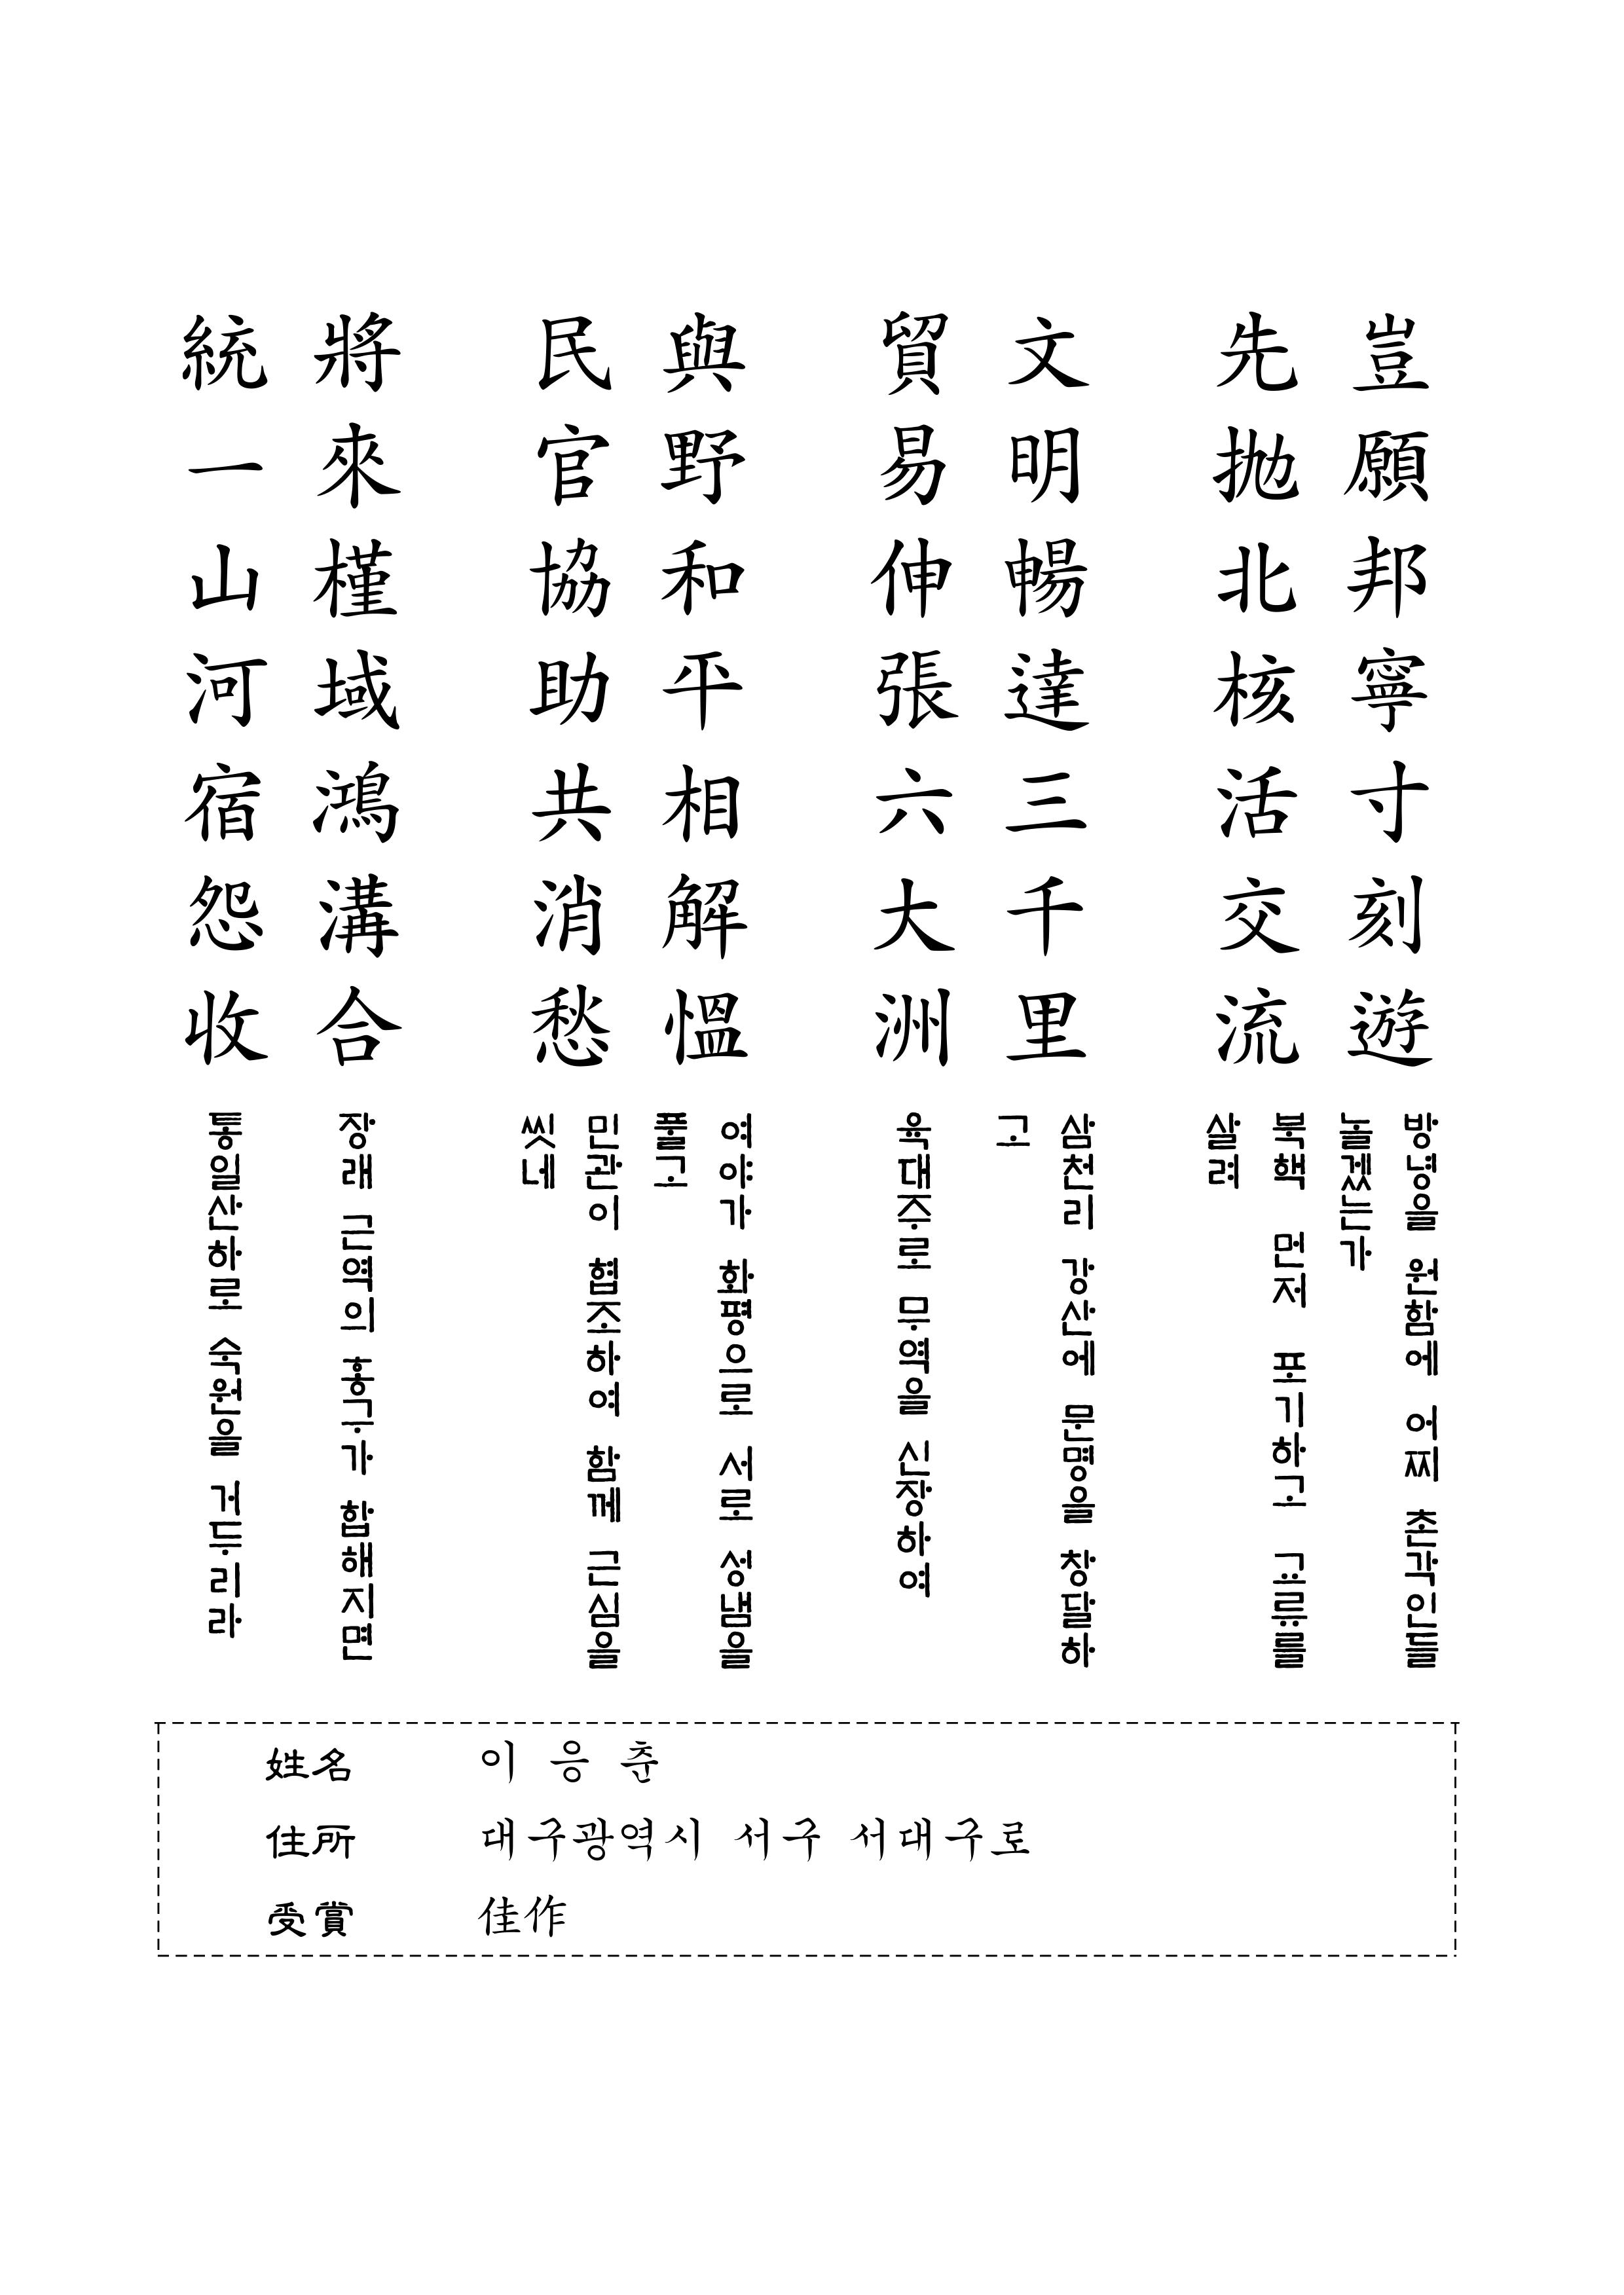 豈願邦寧寸刻遊
先抛北核活交流
文明暢達三千里
貿易伸張六大洲
與野和平相解慍
民官協助共消愁
將來槿域鴻溝合
統一山河宿怨收
방녕을 원함에 어찌 촌각인들
놀겠는가
북핵 먼저 포기하고 교류를
살려
삼천리 강산에 문명을 창달하
고
육대주로 무역을 신장하여
여야가 화평으로 서로 성냄을
풀고
민관이 협조하여 함께 근심을
씻네
장래 근역의 홍구가 합해지면
통일산하로 숙원을 거두리라
姓名 이 응 춘
住所 대구광역시 서구 서대구로
受賞 佳作